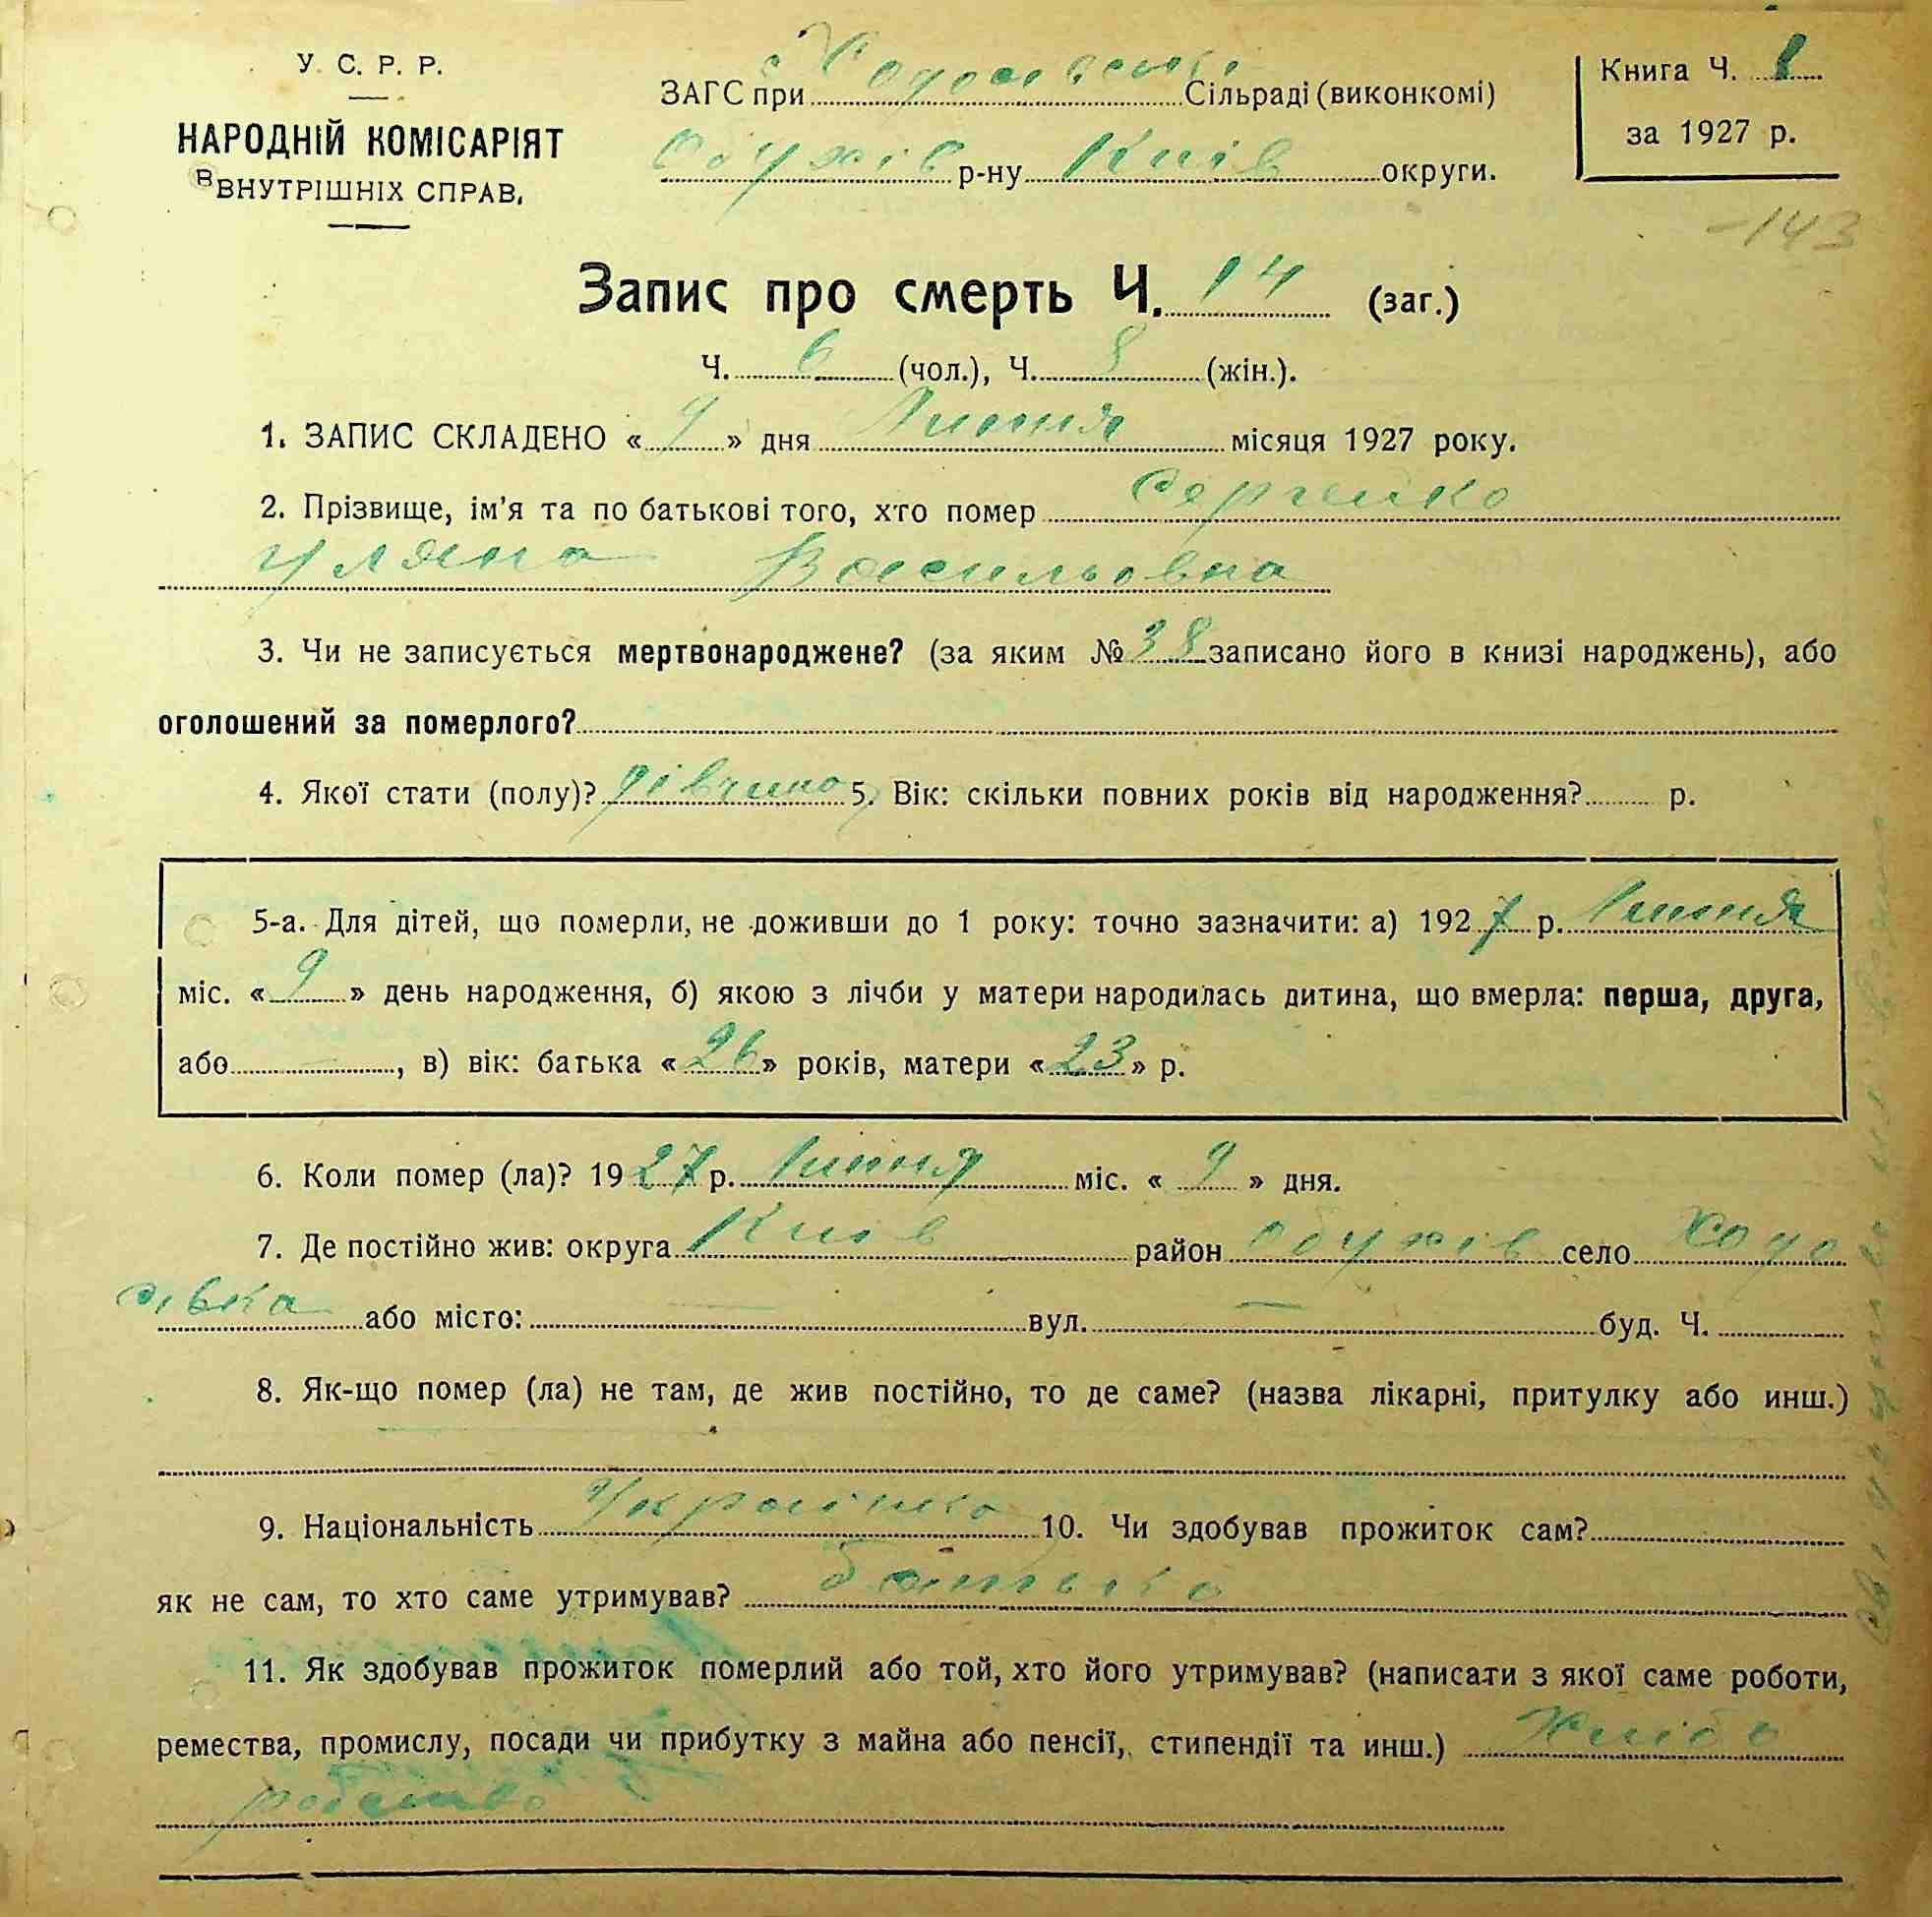 У. С. Р. Р.
НАРОДНІЙ КОМІСАРІЯТ
ВВНУТРІШНІХ СПРАВ.
ЗАГС при с Ходосівські Сільраді (виконкомі)
Обухів р-ну Київ округи.
Книга Ч. 1
за 1927 р.
-143
Запис про смерть Ч. 14 (заг.)
Ч. 6 (чол.), Ч. 8 (жін.).
1. ЗАПИС СКЛАДЕНО « 9 » дня Липня місяця 1927 року.
2. Прізвище, ім'я та по батькові того, хто помер Сергейко
Уляна Васильовна
3. Чи не записується мертвонароджене? (за яким № 38 записано його в книзі народжень), або
оголошений за померлого?
4. Якої стати (полу)? дівчина 5. Вік: скільки повних років від народження? р.
5-а. Для дітей, що померли, не доживши до 1 року: точно зазначити: а) 1927 р. Липня
міс. « 9 » день народження, б) якою з лічби у матери народилась дитина, що вмерла: перша, друга,
або , в) вік: батька « 26 » років, матери « 23 » р.
6. Коли помер (ла)? 1927 р. Липня міс. « 9 » дня.
7. Де постійно жив: округа Київ район Обухів село Ходо
сівка або місто: — вул. — буд. Ч.
8. Як-що помер (ла) не там, де жив постійно, то де саме? (назва лікарні, притулку або инш.)
9. Національність Українка 10. Чи здобував прожиток сам?
як не сам, то хто саме утримував? батько
11. Як здобував прожиток померлий або той, хто його утримував? (написати з якої саме роботи,
ремества, промислу, посади чи прибутку з майна або пенсії, стипендії та инш.) Хлібо
робство